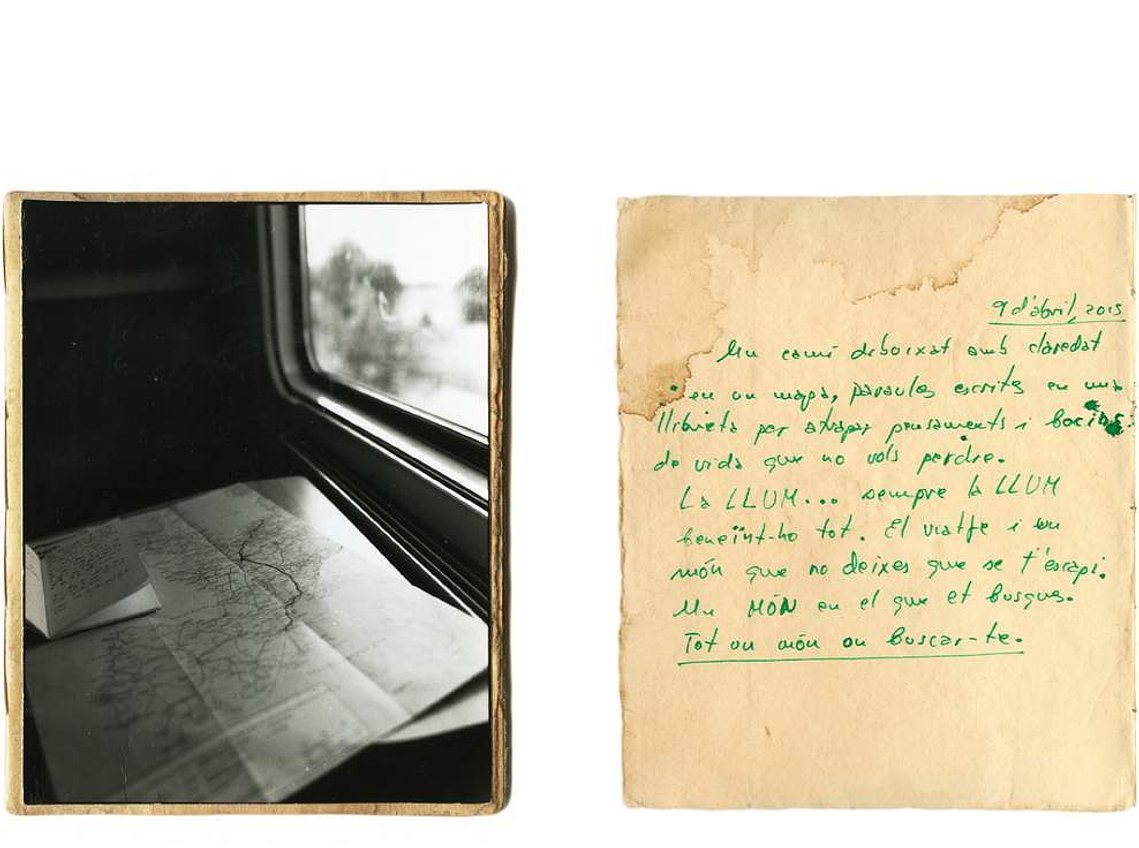 9 d'abril, 2015
Un camí dibuixat amb claredat
en un mapa, paraules escrites en una
llibreta per atrapar pensaments i bocins
de vida que no vols perdre.
La LLUM... sempre la LLUM
beneïnt-ho tot. El viatge i un
món que no deixes que se t'escapi.
Un MÓN en el que et busques.
Tot un món on buscar-te.